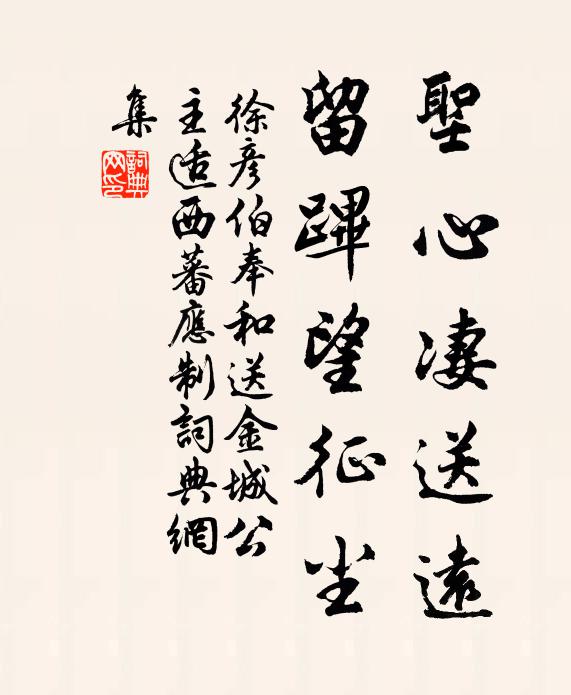 聖心凄送遠
留蹕望征尘
徐彦伯奉和送金城公
主适西蕃應制詞典網
集
詞典网印